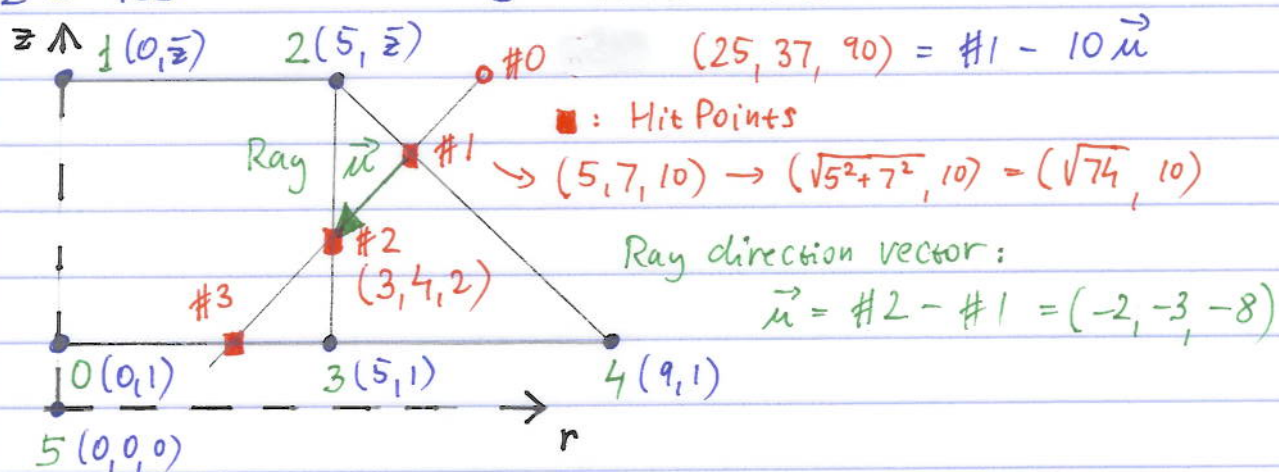 z 1 (0, z̄) 2 (5, z̄) #0 (25, 37, 90) = #1 - 10 u⃗
■ : Hit Points
Ray u⃗ #1 → (5, 7, 10) → (√5²+7², 10) = (√74, 10)
#2 Ray direction vector:
#3 (3, 4, 2) u⃗ = #2 - #1 = (-2, -3, -8)
0 (0, 1) 3 (5, 1) 4 (9, 1)
5 (0, 0, 0) r